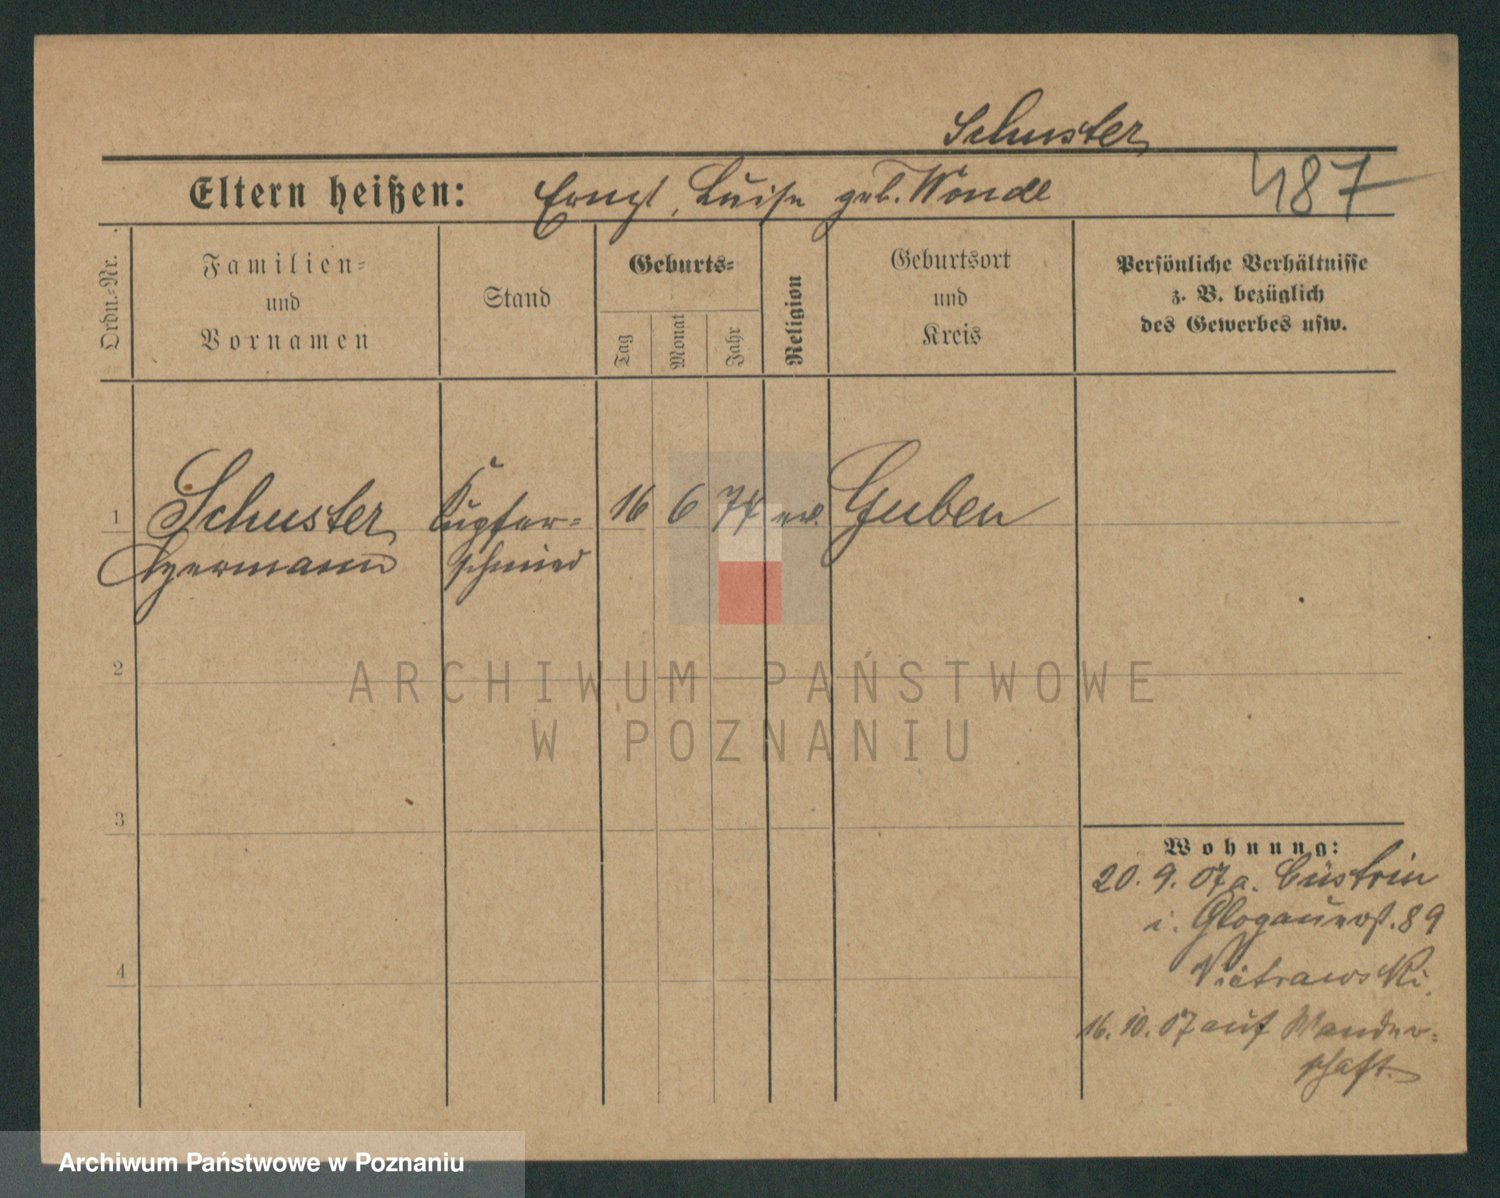 Schuster
Eltern heißen: Ernst, Luise geb. Wonde
487
Ordn.-Nr.
Familien-
und
Vornamen
Stand
Geburts-
Tag
Monat
Jahr
Religion
Geburtsort
und
Kreis
Persönliche Verhältnisse
z. B. bezüglich
des Gewerbes usw.
1 Schuster Kupfer- 16 6 74 ev. Guben
Hermann schmied
2
3
4
Wohnung:
20. 9. 07 a. Cüstrin
i. Glogauerst. 89
16. 10. 07 auf Wander-
schaft.
ARCHIWUM PAŃSTWOWE
W POZNANIU
Archiwum Państwowe w Poznaniu